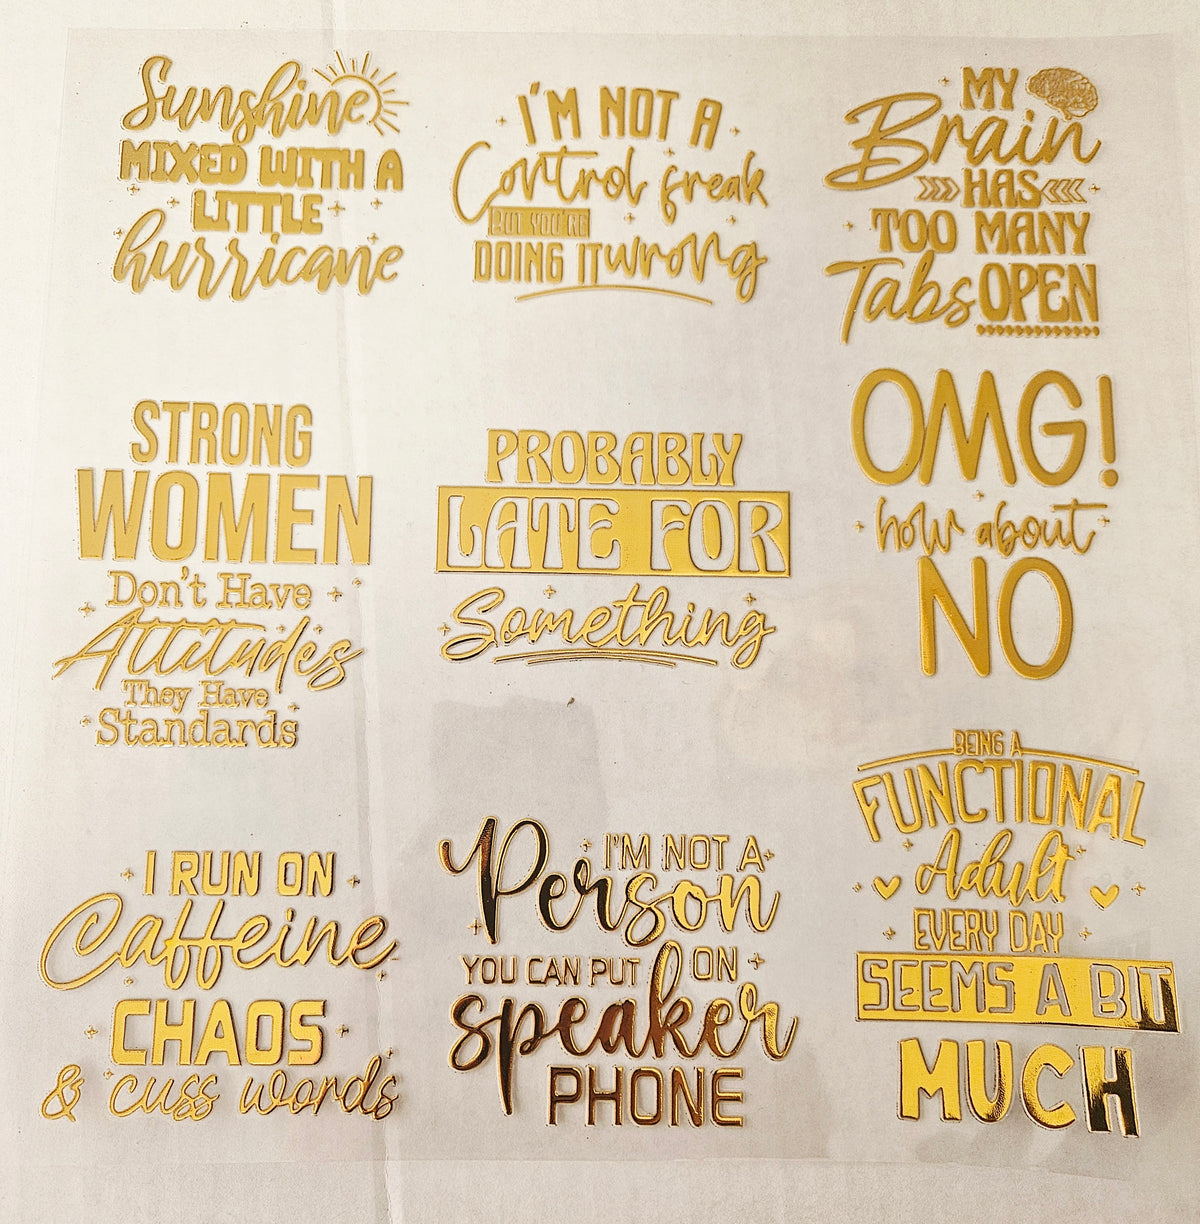 Sunshine
MIXED WITH A
LITTLE
hurricane
I'M NOT A
Control freak
BUT YOU'RE
DOING IT wrong
MY
Brain
HAS
TOO MANY
Tabs OPEN
STRONG
WOMEN
Don't Have
Attitudes
They Have
Standards
PROBABLY
LATE FOR
Something
OMG!
how about
NO
I RUN ON
Caffeine
CHAOS
& cuss words
I'M NOT A
Person
YOU CAN PUT ON
speaker
PHONE
BEING A
FUNCTIONAL
Adult
EVERY DAY
SEEMS A BIT
MUCH